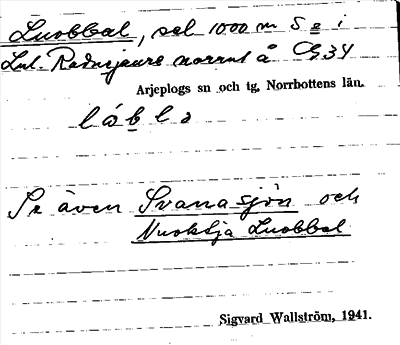 Luobbal, sel 1000 m S e i
Lul. Radnejaure norrut å C9,34
Arjeplogs sn och tg, Norrbottens län.
lábla
Se även Svanasjön och
Nuoktja Luobbal
Sigvard Wallström, 1941.